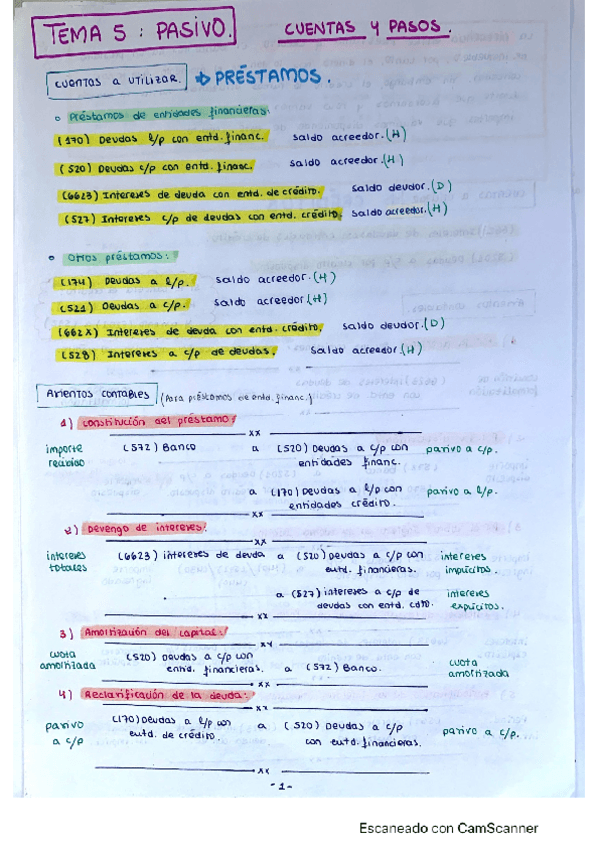 TEMA 5 : PASIVO. CUENTAS Y PASOS.
CUENTAS A UTILIZAR. → PRÉSTAMOS.
Préstamos de entidades financieras:
(170) Deudas l/p con entd. financ. saldo acreedor. (H)
(520) Deudas c/p con entd. financ. saldo acreedor. (H)
(6623) Intereses de deuda con entd. de crédito. saldo deudor. (D)
(527) Intereses c/p de deudas con entd. crédito. saldo acreedor. (H)
Otros préstamos:
(174) Deudas a l/p. saldo acreedor. (H)
(521) Deudas a c/p. saldo acreedor. (H)
(662X) Intereses de deuda con entd. crédito. saldo deudor. (D)
(528) Intereses a c/p de deudas. saldo acreedor. (H)
Asientos contables (Para préstamos de entd. financ.)
1) Constitución del préstamo:
xx
importe recibido (572) Banco a (520) Deudas a c/p con entidades financ. pasivo a c/p.
a (170) Deudas a l/p con entidades crédito. pasivo a l/p.
xx
2) Devengo de intereses:
xx
intereses totales (6623) intereses de deuda a (520) Deudas a c/p con entd. financieras. intereses implícitos.
a (527) intereses a c/p de deudas con entd. cdto. intereses explícitos.
xx
3) Amortización del capital:
xx
cuota amortizada (520) Deudas a c/p con entid. financieras. a (572) Banco. cuota amortizada
xx
4) Reclasificación de la deuda:
xx
pasivo a c/p (170) Deudas a l/p con entd. de crédito. a (520) Deudas a c/p con entd. financieras. pasivo a c/p.
xx
-1-
Escaneado con CamScanner